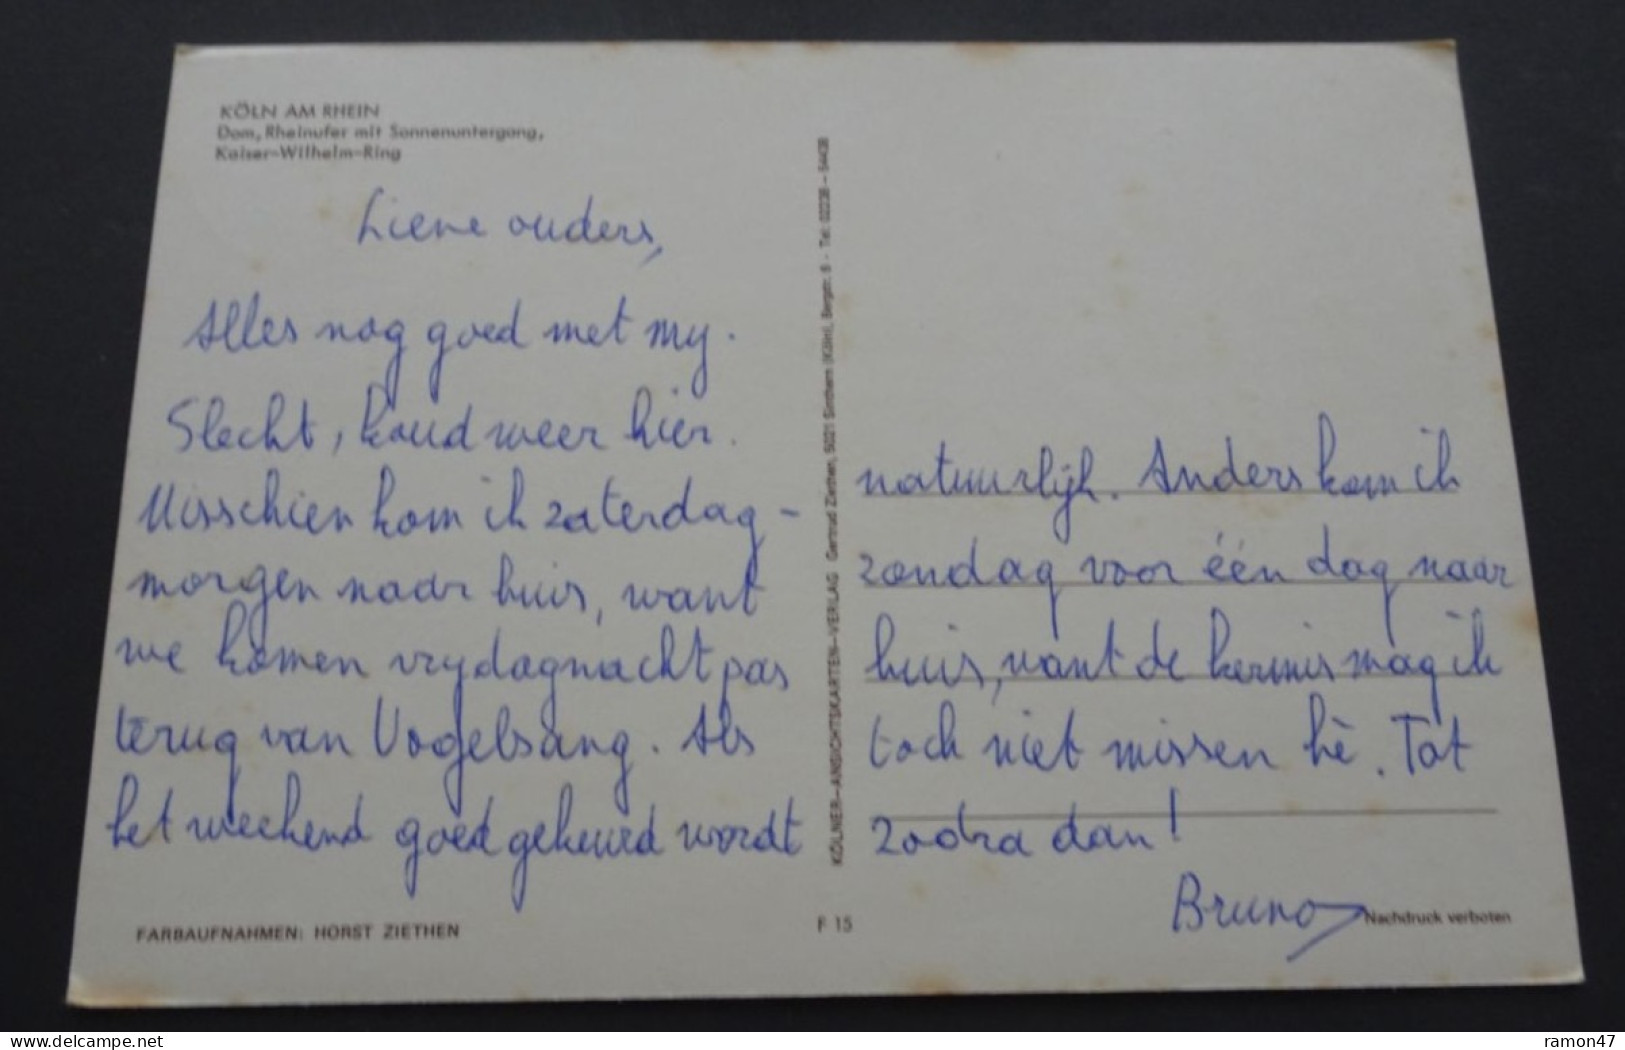 KÖLN AM RHEIN
Dom, Rheinufer mit Sonnenuntergang,
Kaiser-Wilhelm-Ring
Lieve ouders,
Alles nog goed met my.
Slecht, koud weer hier.
Misschien kom ik zaterdag-
morgen naar huis, want
we komen vrydagnacht pas
terug van Vogelsang. Als
het weekend goedgekeurd wordt
KÖLNER-ANSICHTSKARTEN-VERLAG Gertrud Ziethen, 5021 Sinthern (Köln), Bergstr. 6 - Tel. 02238 - 54438
natuurlijk. Anders kom ik
zondag voor één dag naar
huis, want de kermis mag ik
toch niet missen hè. Tot
zodra dan!
Bruno
FARBAUFNAHMEN: HORST ZIETHEN
F 15
Nachdruck verboten
delcampe.net
ramon47